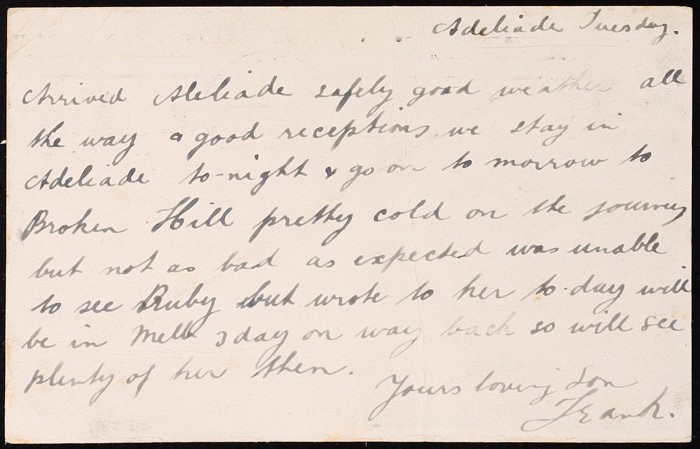 Adeliade Tuesday.
Arrived Aleliade safely good weather all
the way & good receptions we stay in
Adeliade to-night & go on to morrow to
Broken Hill pretty cold on the journey
but not as bad as expected was unable
to see Ruby but wrote to her to-day will
be in Melb 3 day on way back so will see
plenty of her then.
Yours loving Son
Frank.